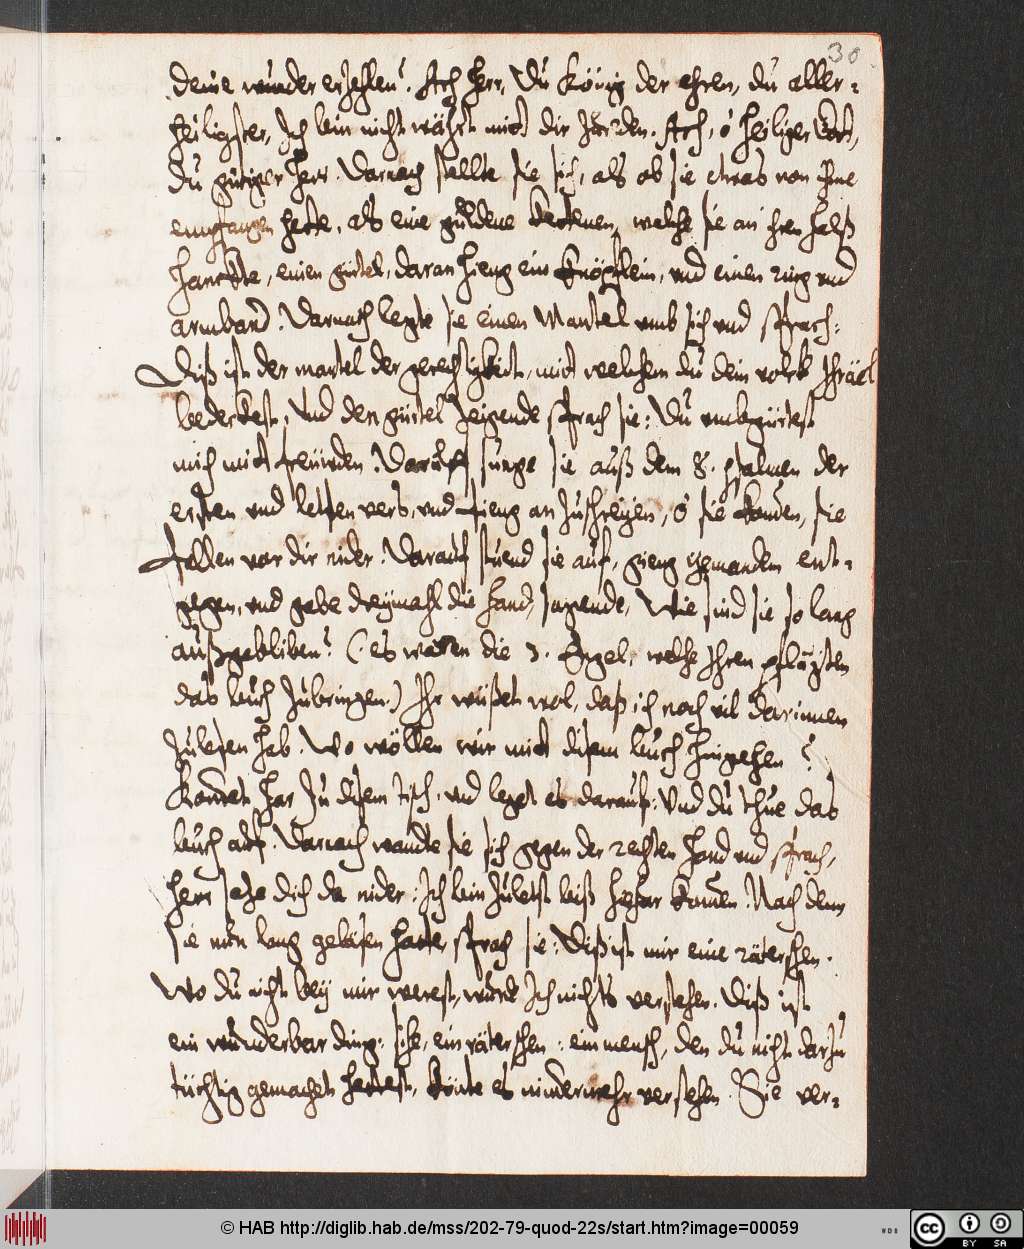 30.
deine wunder erzehlen. Ach Herr, Du König der ehren, du aller-
heiligster, Ich bin nicht währt mit dir zů reden. Ach, ô heiliger Gott,
du gütiger Herr. Darnach stellte sie sich, als ob sie etwas von ihme
empfangen hette, als eine guldene kettenen, welche sie an ihren halß
hanckte, einen gürtel, daran hieng ein knöpflein, und einen ring und
armband. Darnach legte sie einen Mantel umb sich und sprach:
Diß ist der mantel der gerechtigkeit, mit welchem du dein volck Ihsräel
bedeckest, Und den gürtel zeigende sprach sie: Du umbgürtest
mich mit freuwden. Darauff sunge sie auß dem 8. psalmen den
ersten und letsten vers, und fieng an zuschreijen, ô sie komen, sie
fallen vor dir nider. Darauf stuend sie auf, gieng ijemandem ent-
gegen, und gabe dreijmahl die hand, sagende, Wie sind sie so lang
außgebliben? (es waren die 3. Engel, welche Ihren pflägten
das buch zubringen.) Ihr wüßet wol, daß ich noch vil darinnen
zulesen hab. Wo wöllen wir mit disem buch hingehen?
Kommet har zu disem tisch, und legt es darauf: Und du thue das
buch auf. Darnach wandte sie sich gegen der rechten hand und sprach,
Herr setze dich da nider: Ich bin zuletst biß hiehar komen. Nach dem
sie nun lang geläsen hatte, sprach sie: Diß ist mir eine räterschen.
Wo du nicht beij mir werest, wurde Ich nichts verstehen. Diß ist
ein wunderbar ding: sihe, ein räterschen: ein mensch, den du nicht darzu
tüchtig gemachet hettest, könte es nimmermehr verstehen. Sie ver-
© HAB http://diglib.hab.de/mss/202-79-quod-22s/start.htm?image=00059
WDB
CC BY SA